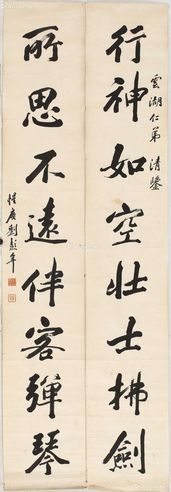 雲湖仁弟 清鑒
行神如空壯士拂劍
所思不遠伴客彈琴
劉彭年